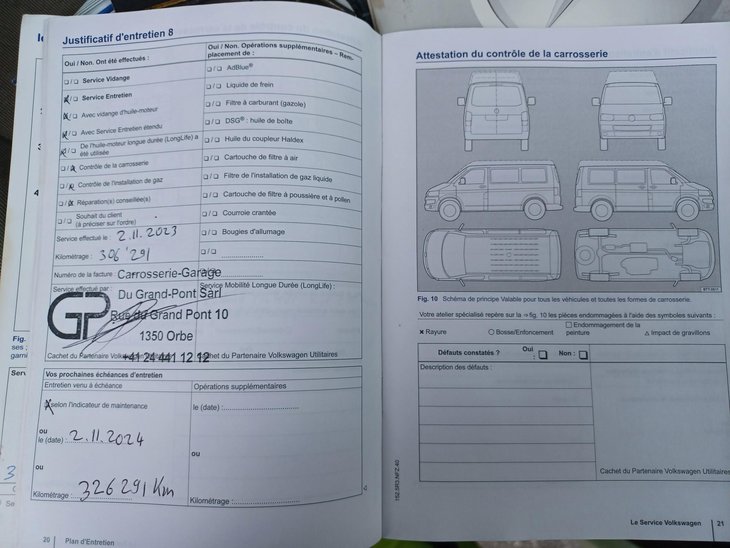 Justificatif d'entretien 8
Oui / Non. Ont été effectués :
❑/❑ Service Vidange
☒/❑ Service Entretien
☒/❑ Avec vidange d'huile-moteur
☒/❑ Avec Service Entretien étendu
☒/❑ De l'huile-moteur longue durée (LongLife) a
été utilisée
❑/☒ Contrôle de la carrosserie
❑/☒ Contrôle de l'installation de gaz
❑/☒ Réparation(s) conseillée(s)
❑/❑ Souhait du client
(à préciser sur l'ordre)
Service effectué le : 2.11.2023
Kilométrage : 306'291
Numéro de la facture :
Service effectué par :
Carrosserie-Garage
Du Grand-Pont Sàrl
Rue du Grand Pont 10
1350 Orbe
+41 24 441 12 12
GP
Cachet du Partenaire Volkswagen Utilitaires
Oui / Non. Opérations supplémentaires – Rem-
placement de :
❑/❑ AdBlue®
❑/❑ Liquide de frein
❑/❑ Filtre à carburant (gazole)
❑/❑ DSG® : huile de boîte
❑/❑ Huile du coupleur Haldex
❑/❑ Cartouche de filtre à air
❑/❑ Filtre de l'installation de gaz liquide
❑/❑ Cartouche de filtre à poussière et à pollen
❑/❑ Courroie crantée
❑/❑ Bougies d'allumage
❑/❑
Service Mobilité Longue Durée (LongLife) :
Cachet du Partenaire Volkswagen Utilitaires
Vos prochaines échéances d'entretien
Entretien venu à échéance
☒ selon l'indicateur de maintenance
ou
le (date) : 2.11.2024
ou
Kilométrage : 326291 Km
Opérations supplémentaires
le (date) :
ou
Kilométrage :
20 Plan d'Entretien
Attestation du contrôle de la carrosserie
Fig. 10 Schéma de principe Valable pour tous les véhicules et toutes les formes de carrosserie.
Votre atelier spécialisé repère sur la ⇒ fig. 10 les pièces endommagées à l'aide des symboles suivants :
× Rayure
○ Bosse/Enfoncement
□ Endommagement de la
peinture
△ Impact de gravillons
Défauts constatés ? Oui : ❑ Non : ❑
Description des défauts :
Cachet du Partenaire Volkswagen Utilitaires
152.5R3.NFZ.40
Le Service Volkswagen 21